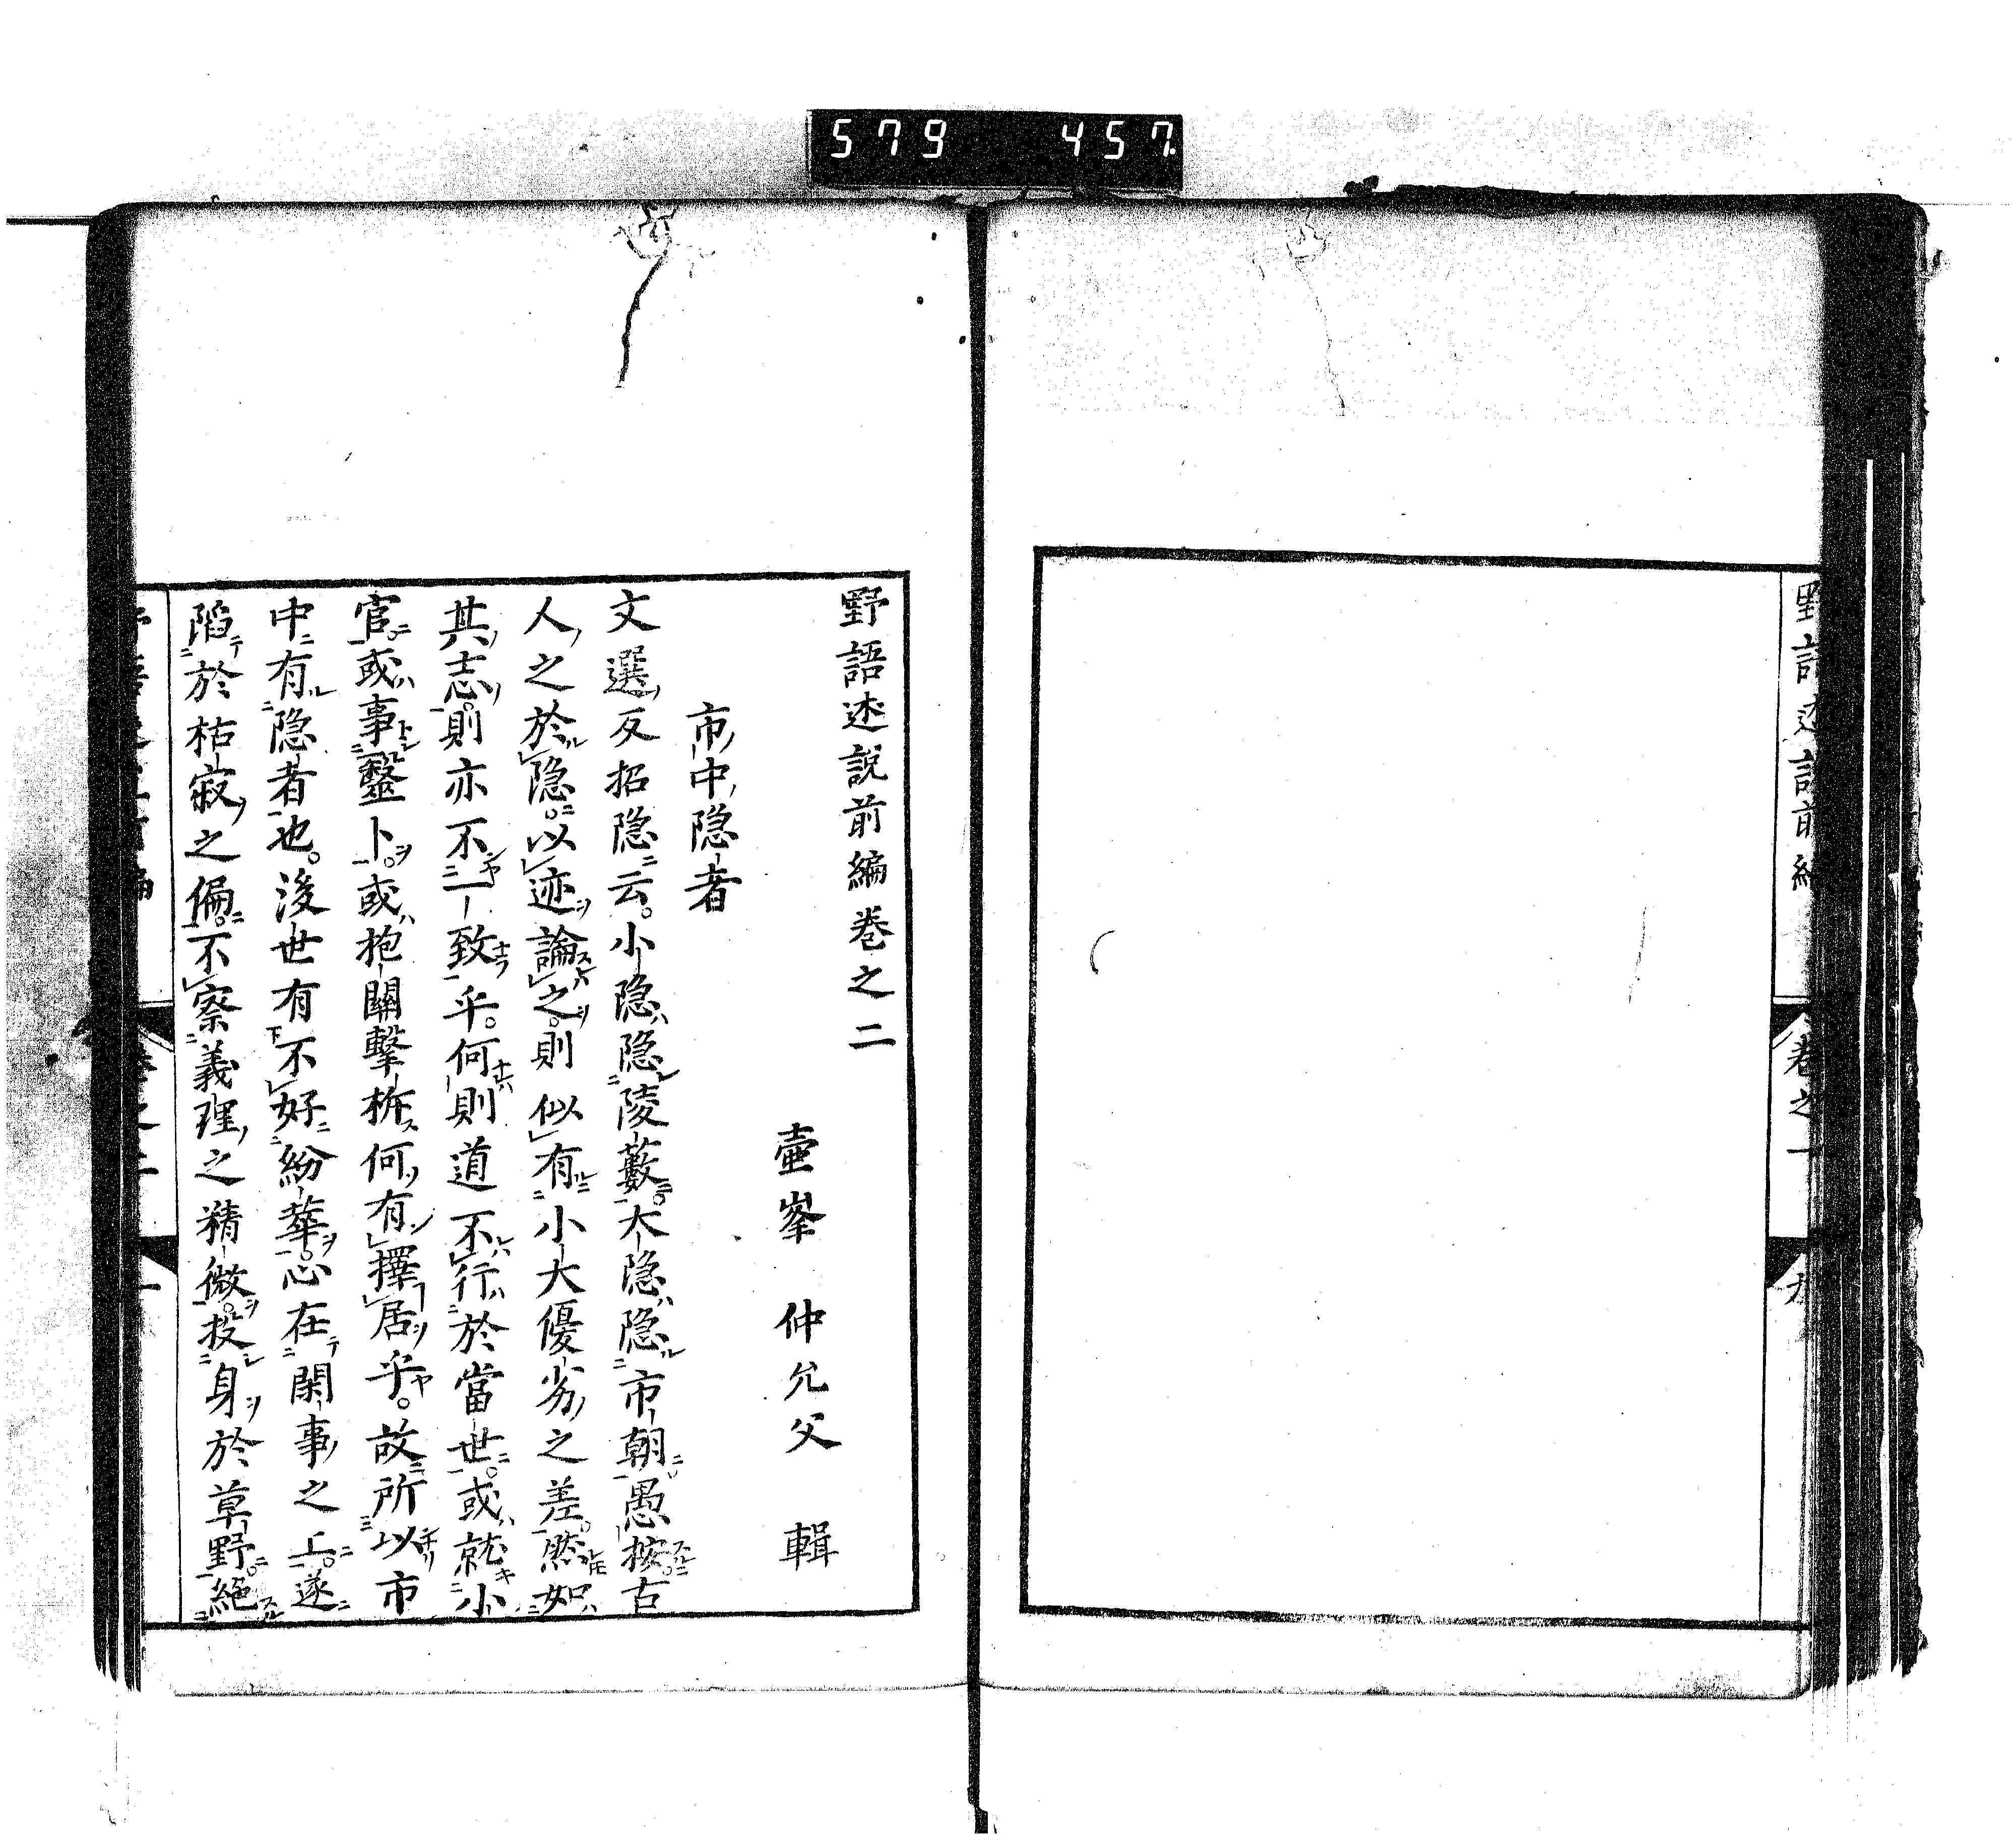 579 457
野語述說前編
卷之一
野語述說前編卷之二
壷峯 仲允父 輯
市中隐者
文選反招隐云。小隐隐陵藪。大隐隐市朝愚按古
人之於隐。以迹論之。則似有小大優劣之差。然如
其志。則亦不一致乎。何則道不行於當世。或就小
官。或事毉卜。或抱關擊柝何有擇居乎。故所以市
中有隐者也。後世有不好紛華。心在閑事之上。遂
陷於枯寂之偏。不察義理之精微。投身於草野。絕